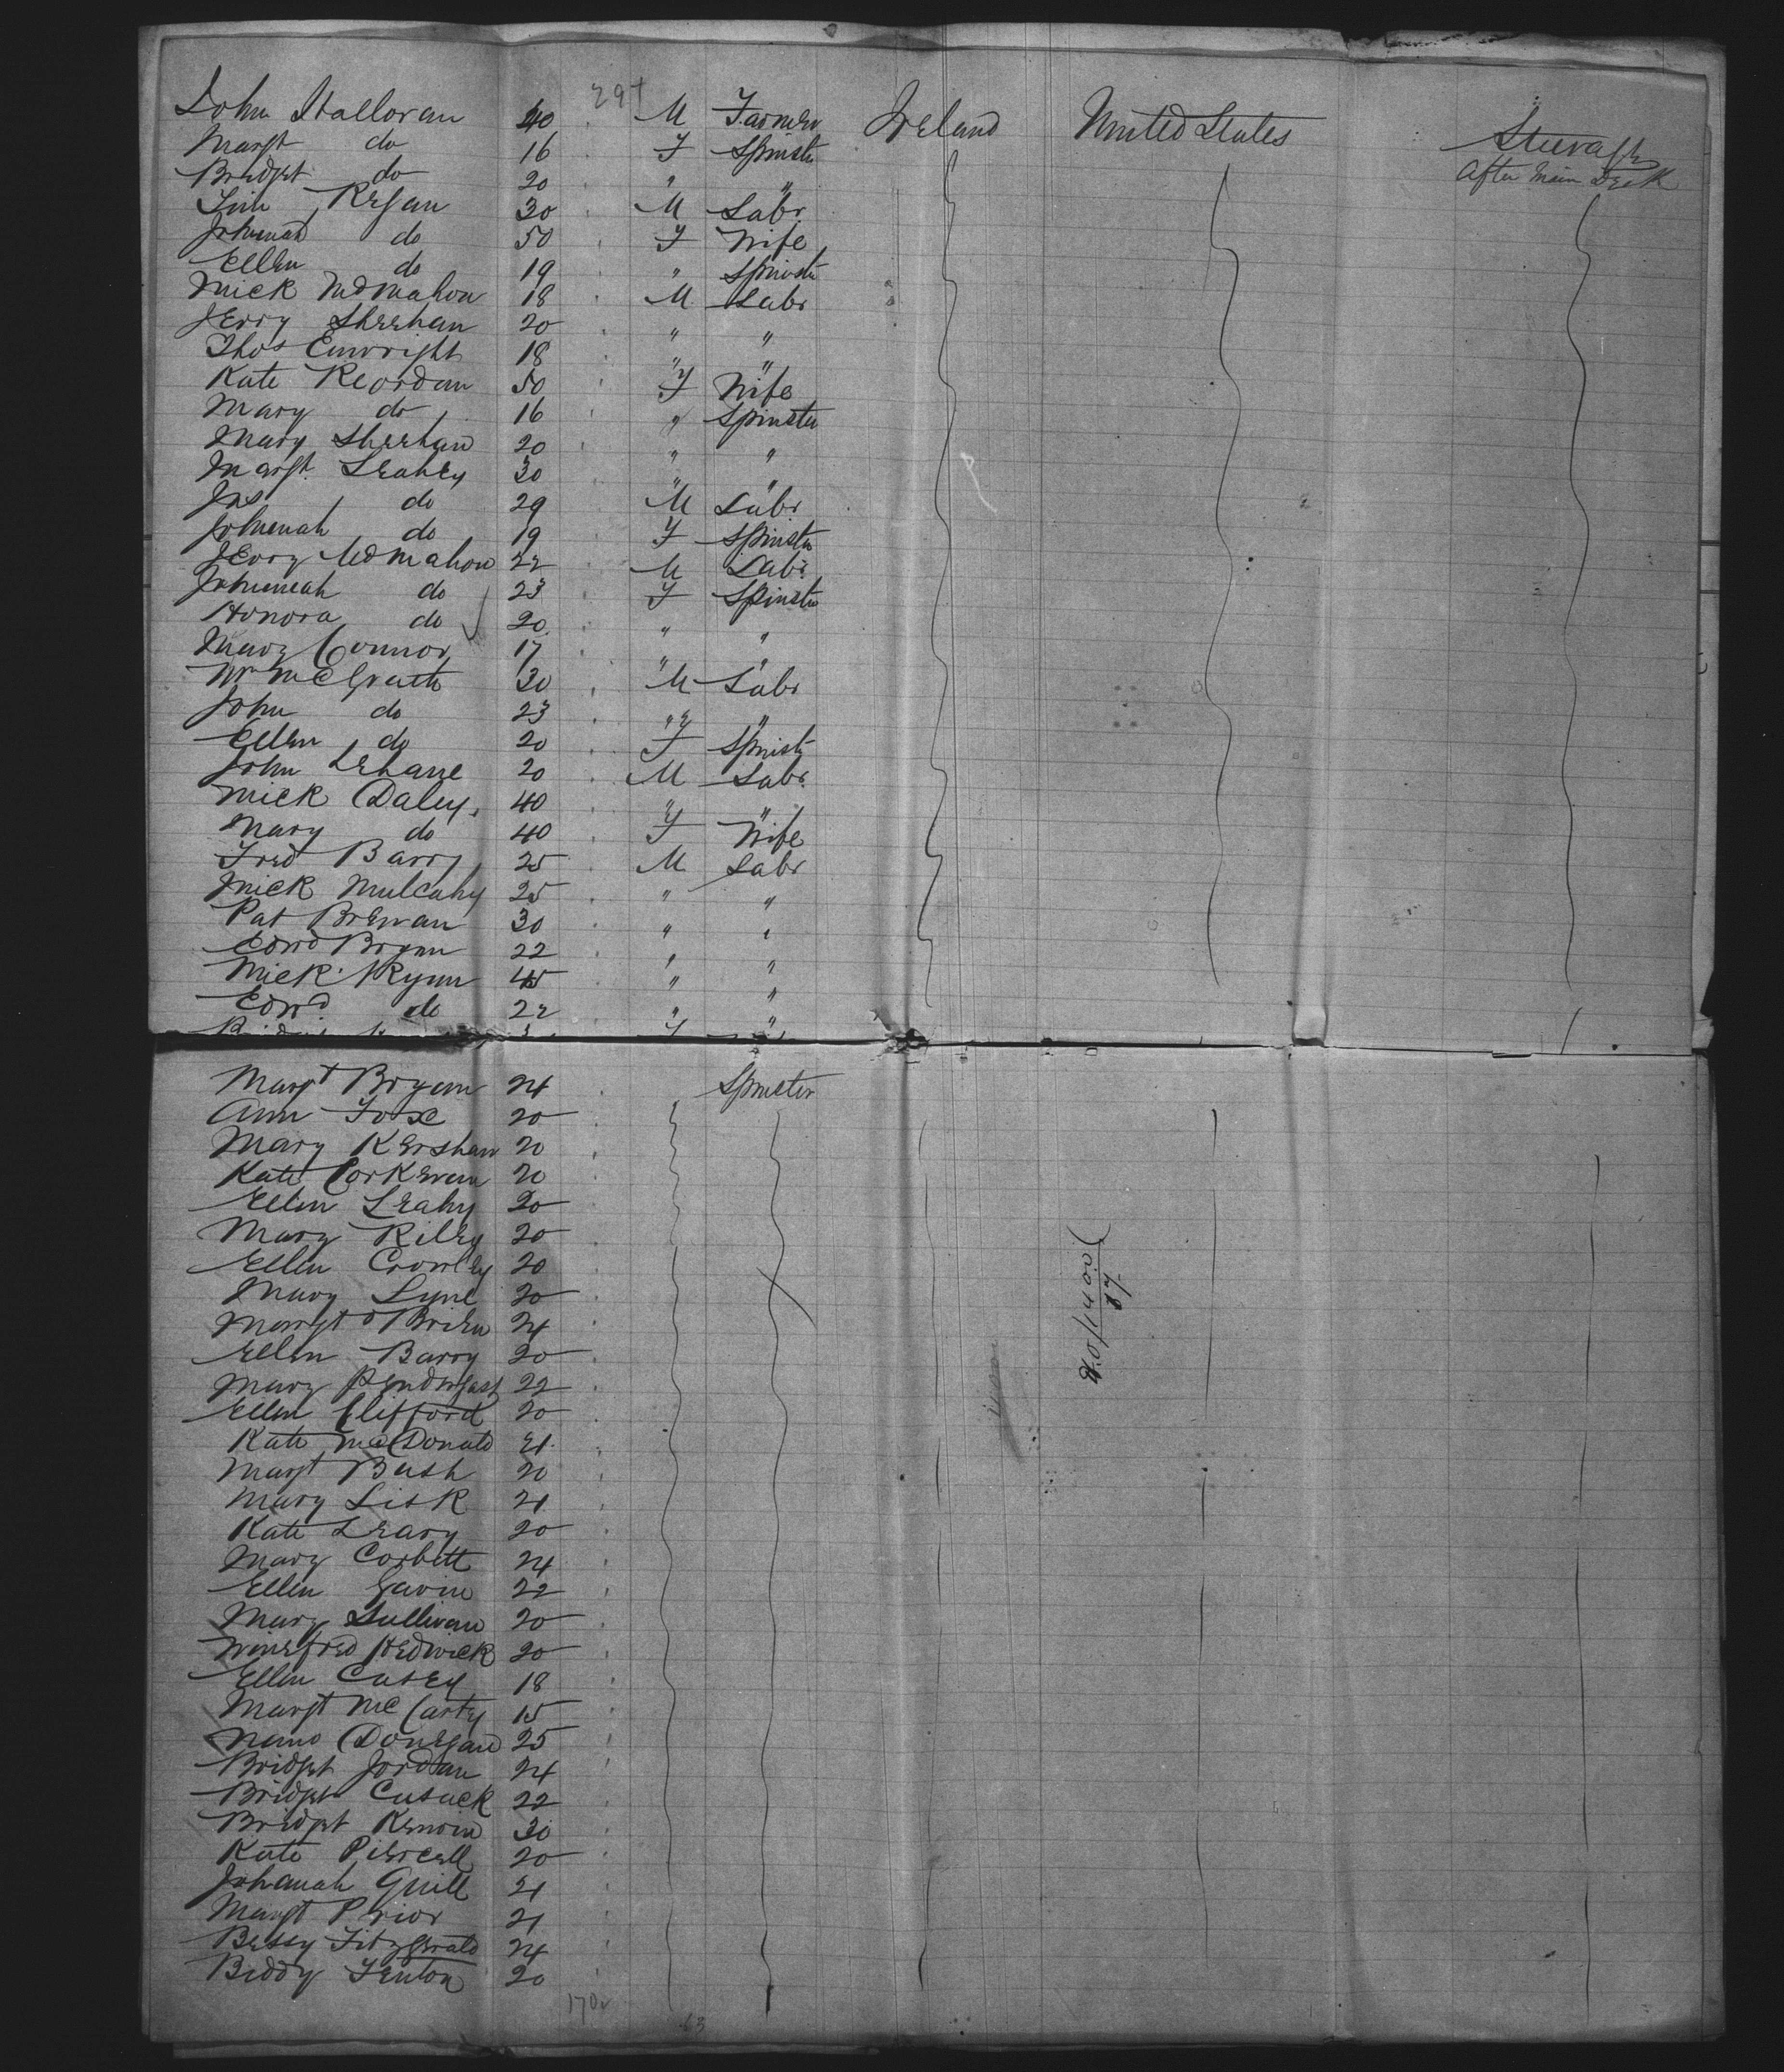 John Halloran 40 M Farmer Ireland United States Steerage
Margt do 16 F Spinstr After Main Deck
Bridget do 20 " "
Tim Regan 30 M Labr
Johanah do 50 F Wife
Ellen do 19 " Spinstr
Mick McMahon 18 M Labr
Jerry Sheehan 20 " "
Thos Enwright 18 " "
Kate Reordan 50 F Wife
Mary do 16 " Spinster
Mary Sheehan 20 " "
Margt Leahey 30 " "
Jas do 29 M Labr
Johanah do 19 F Spinstr
Jerry McMahon 22 M Labr
Johannah do 23 F Spinstr
Honora do 20 " "
Mary Connor 17 " "
Wm McGrath 30 M Labr
John do 23 " "
Ellen do 20 F Spinstr
John Lehane 20 M Labr
Mick Daley 40 " "
Mary do 40 F Wife
Fred Barry 25 M Labr
Mick Mulcahy 25 " "
Pat Brewan 30 " "
Edwd Bryan 22 " "
Mick Ryan 45 " "
Edwd do 22 " "
F "
Margt Bryan 24 Spinster
Ann Foxe 20
Mary Kershaw 20
Kate Corkeran 20
Ellen Leahy 20
Mary Riley 20
Ellen Crowley 20
Mary Lyne 20
Margt O'Brien 24
Ellen Barry 20
Mary Pendergast 22
Ellen Clifford 20
Kate McDonald 21
Margt Bush 20
Mary Lisk 21
Kate Leary 20
Mary Corbett 24
Ellen Gavin 22
Mary Sullivan 20
Winefred Hedwick 20
Ellen Casey 18
Margt McCarty 15
Nano Donegan 25
Bridget Jordan 24
Bridget Cusack 22
Bridget Kerwin 30
Kate Piercell 20
Johanah Quill 21
Margt Prior 21
Bessy Fitzgerald 24
Biddy Fenton 20
170
63